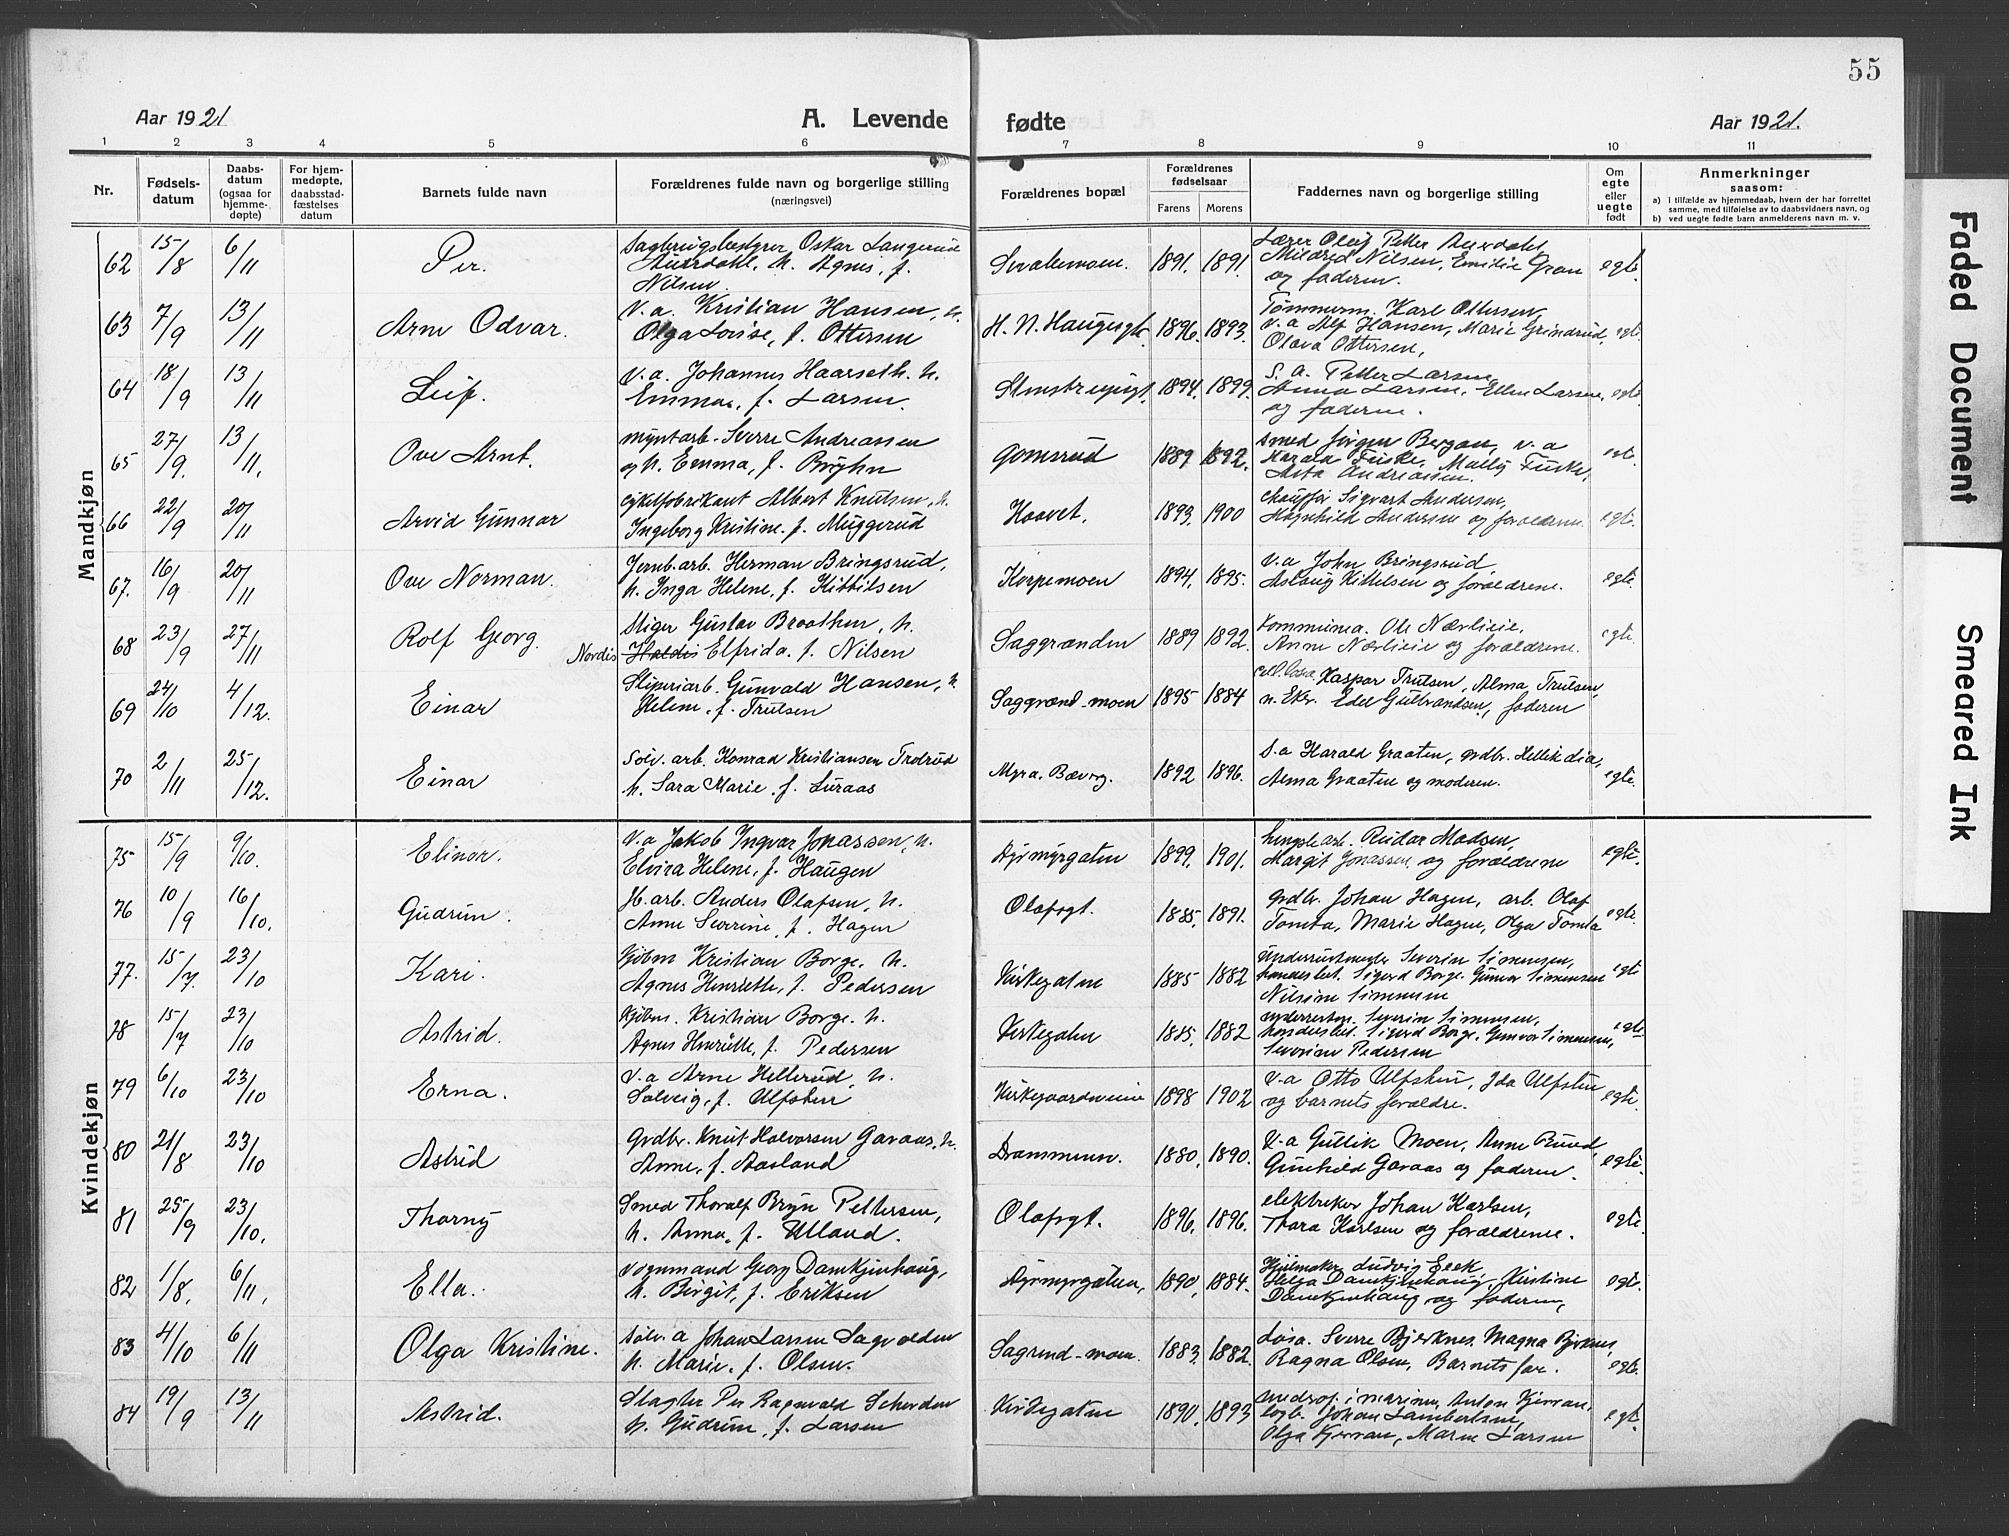 55
Aar 1921
A. Levende
fødte
Aar 1921.
1 2 3 4 5 6 7 8 9 10 11
Nr.
Fødsels-
datum
Daabs-
datum
(ogsaa for
hjemme-
døpte)
For hjem-
medøpte,
daabsstad-
fæstelses
datum
Barnets fulde navn
Forældrenes fulde navn og borgerlige stilling
(næringsvei)
Forældrenes bopæl
Forældrenes
fødselsaar
Farens
Morens
Faddernes navn og borgerlige stilling
Om
egte
eller
uegte
født
Anmerkninger
saasom:
a) i tilfælde av hjemmedaab, hvem der har forrettet
samme, med tilføielse av to daabsvidners navn, og
b) ved uegte fødte barn anmelderens navn m. v.
Mandkjøn
62 15/8 6/11 Per. Sagbrugsbestyrer Oskar Langerud Smalemoen. 1891. 1891. Lærer Oluf Petter Auerdahl, egte
Auerdahl, h. Agnes, f. Mildred Nilsen, Emilie Gran
Nilsen. og faderen.
63 7/9 13/11 Arne Odvar. V.a. Kristian Hansen, h. H. N. Haugesgt. 1896. 1893. Tømmerm. Karl Ottersen, egte.
Olga Lovise, f. Ottersen v.a Alf Hansen, Marie Grindrud,
Olava Ottersen,
64 18/9 13/11 Leif. V.a. Johannes Haarseth. h. 1894. 1899. S.a. Petter Larsen, egte.
Emma, f. Larsen. Anna Larsen, Ellen Larsen,
og faderne.
65 27/9. 13/11. Ove Arnt. Myntarb. Sverre Andreassen Gomsrud 1889 1892. Smed Jørgen Bergan, v.a egte.
og h. Emma, f. Bryhn Harald Fuske, Mally Fuske,
Asta Andreassen.
66 22/9 20/11 Arvid Gunnar Cykelfabrikant Albert Knutsen, h. Haavet. 1893. 1900 Chauffør Sigvart Andersen, egte.
Ingeborg Kristine f. Muggerud Ragnhild Andersen og forældrene.
67. 16/9 20/11 Ove Norman. Jernb.arb. Herman Bringsrud, Korpemoen 1894. 1895. V.a John Bringsrud egte.
h. Inga Helene, f. Kittilsen Aslaug Kittelsen og forældrene.
68 23/9 27/11 Rolf Georg. Stiger Gustav Braathen, h. Saggrænden 1889 1892. Kommunea. Ole Nærlieie, egte.
Nordis Haldis Elfrida, f. Nilsen Anne Nærlieie og forældrene.
69 24/10 4/12. Einar Sliperiarb. Gunvald Hansen, h. Saggrænd-moen 1895 1884 Kaspar Trulsen, Alma Trulsen,
Helene, f. Trulsen n. Eker. Edel Gulbrandsen, faderen
70 2/11 25/12. Einar Sølv. arb. Konrad Kristiansen Trolrud Myra. Bævrg. 1892 1896. S.a Harald Graaten, grdbr. Hellik Lia, egte.
h. Sara Marie, f. Luraas Anna Graaten og moderen.
Kvindekjøn
75 15/9 9/10. Elinor. V.a Jakob Ingvar Jonassen, h. Dyrmyrgaten 1899. 1901. Reidar Madsen, egte.
Elvira Helene, f. Haugen Margit Jonassen og forældrene
76 10/9 16/10. Gudrun. Jb. arb. Anders Olafsen, h. Olafsgt. 1885. 1891. Grdbr. Johan Hagen, arb. Olaf egte.
Anne Severine, f. Hagen Tomta, Marie Hagen, Olga Tomta
77. 15/7. 23/10 Kari. Kjøbm Kristian Borge. h. Kirkegaten 1885 1882 Severin Simensen, egte
Agnes Henriette, f. Pedersen Sigurd Borge. Gunvor Simensen
Simensen
78 15/7 23/10 Astrid. Kjøbm. Kristian Borge. h. Kirkegaten 1885. 1882 Severin Simensen, egte
Agnes Henriette, f. Pedersen Sigurd Borge, Gunvor Simensen,
Severine Pedersen
79 6/10 23/10 Erna. V.a Arne Hellerud, h. Kirkegaardsveien 1898 1902 V.a Otto Ulfsten, Ida Ulfsten egte.
Solveig, f. Ulfsten og barnets forældre.
80 21/8 23/10 Astrid Grdbr. Knut Halvorsen Gavaas, h. Drammen. 1880. 1890. V.a Gullik Moen, Anne Ruud, egte.
Anne, f. Aasland Gunhild Gavaas og faderen.
81 25/9 23/10. Thorny Smed Thoralf Bryn Pettersen, Olafsgt. 1896. 1896. elektriker Johan Karlsen, egte
h. Anna, f. Ulland. Thora Karlsen og forældrene.
82 1/8. 6/11. Ella. Vognmand Georg Damkjinhaug, Dyrmyrgaten, 1890, 1884. Hjulmaker Ludvig Eeek, egte.
h. Birgit, f. Eriksen Helga Damkjinhaug, Kristine
Damkjinhaug og faderen,
83 4/10 6/11 Olga Kristine. Sølv. a Johan Larsen Sagvolden Sagrend-moen. 1883. 1882. Løsa. Sverre Bjerknes. Magna Bjerknes, egte.
h. Marie, f. Olsen. Ragna Olsen, Barnets far.
84 19/9 13/11 Astrid. Slagter Per Ragnvald Scherden Kirkegaten 1890. 1893 i marinen, Anton Kjervan, egte.
h. Gudrun, f. Larsen Johan Lambertsen,
Olga Kjervan, Maren Larsen
Faded Document
Smeared Ink